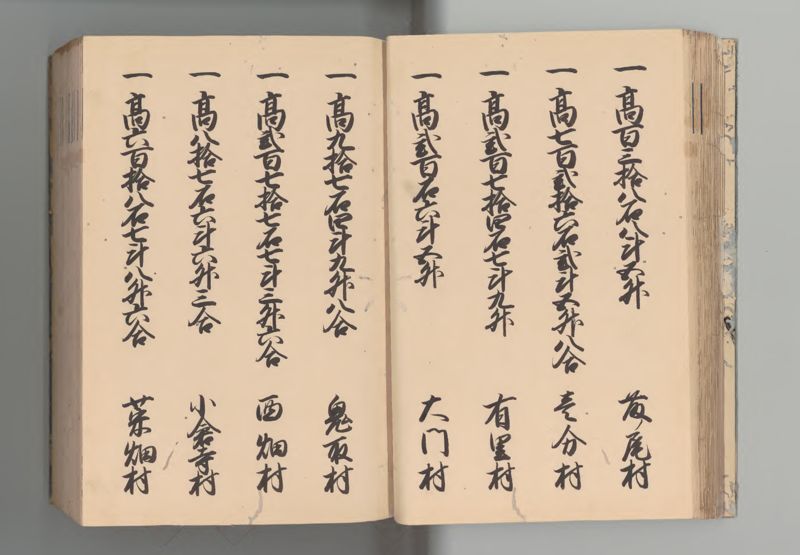 一 高百三拾八石八斗五升 藤ノ尾村
一 高七百弐拾六石弐斗五升八合 壱分村
一 高弐百七拾四石七斗九升 有里村
一 高弐百石六斗五升 大門村
一 高九拾七石四斗九升八合 鬼取村
一 高弐百七拾七石七斗三升六合 西畑村
一 高八拾七石六斗六升三合 小倉寺村
一 高六百拾八石七斗八升六合 菜畑村